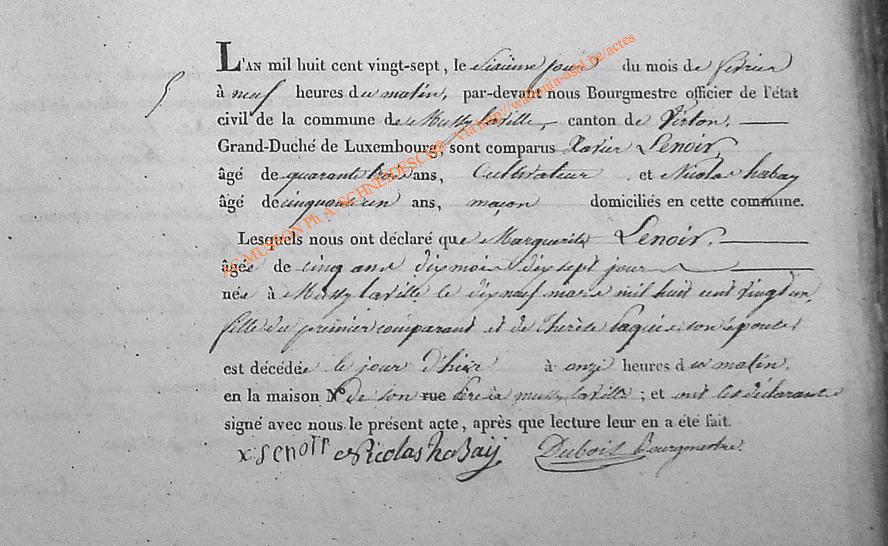 L'AN mil huit cent vingt-sept, le Sixième jour du mois de février
5 à neuf heures du matin, par-devant nous Bourgmestre officier de l'état
civil de la commune de Mussy laville, canton de Virton,
Grand-Duché de Luxembourg, sont comparus Xavier Lenoir,
âgé de quarante trois ans, Cultivateur et Nicolas habay
âgé de cinquante un ans, maçon domiciliés en cette commune.
Lesquels nous ont déclaré que Marguerite Lenoir.
âgée de cinq ans dix mois dix sept jours
née à Mussy laville le dix neuf mars mil huit cent vingt un,
fille du premier comparant et de thérèse son épouse
est décédée le jour d'hier à onze heures du matin,
en la maison N° de son rue père à mussy laville ; et ont les déclarants
signé avec nous le présent acte, après que lecture leur en a été fait.
x Lenoir Nicolas habaij Dubois bourgmestre
AC MUSSON Ph A. SCHNEIDESCH Via http://wallonia-asbl.be/actes